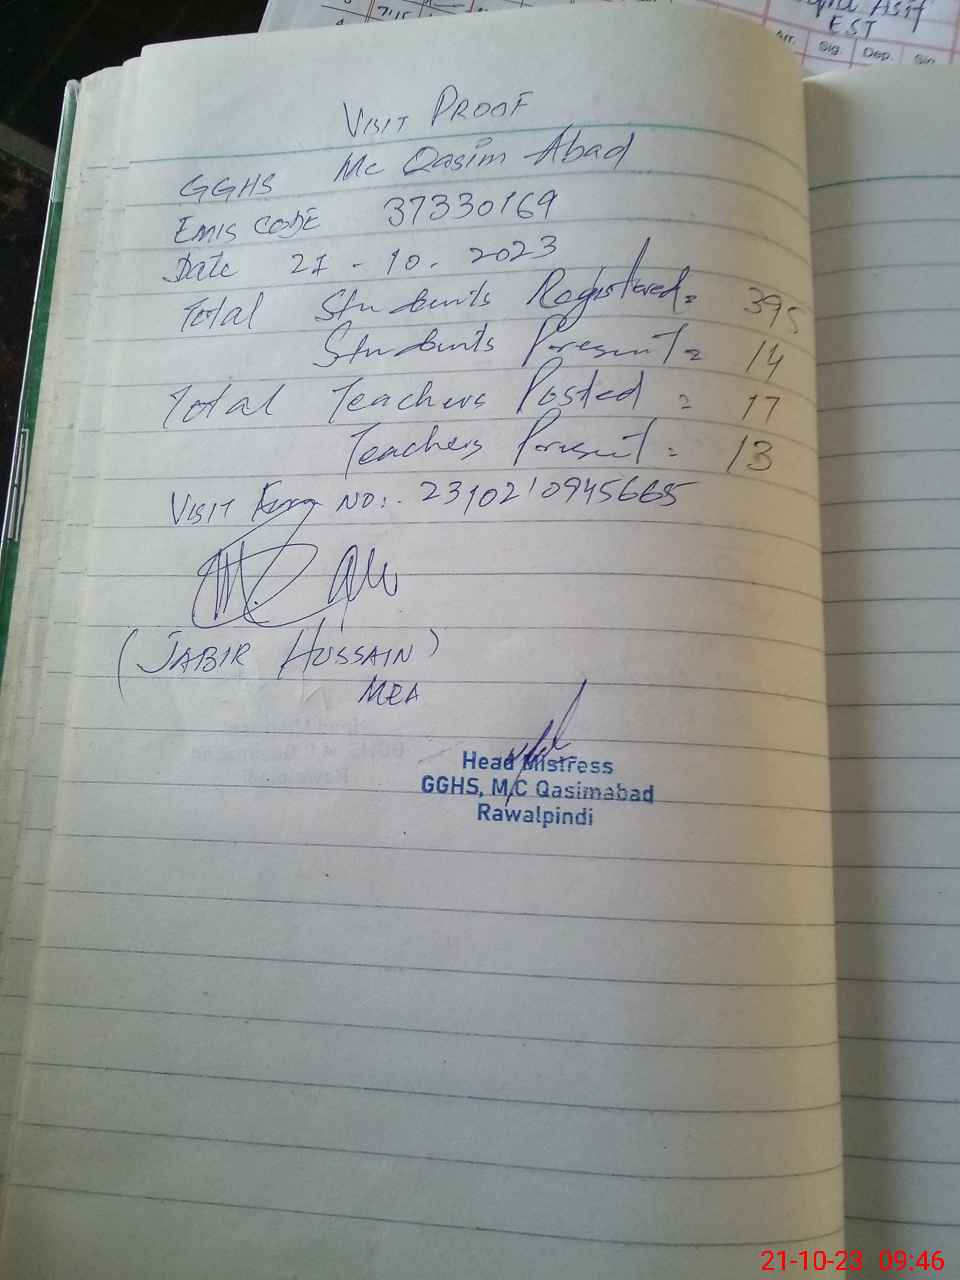 7:15
Asif
EST
Arr. Sig. Dep. Sin
VISIT PROOF
GGHS Mc Qasim Abad
EMIS CODE 37330169
Date 21 - 10. 2023
Total Students Registered = 395
Students Present = 14
Total Teachers Posted = 17
Teachers Present = 13
VISIT NO:. 2310210945665
(JABIR HUSSAIN)
MEA
Head Mistress
GGHS, M,C Qasimabad
Rawalpindi
21-10-23 09:46